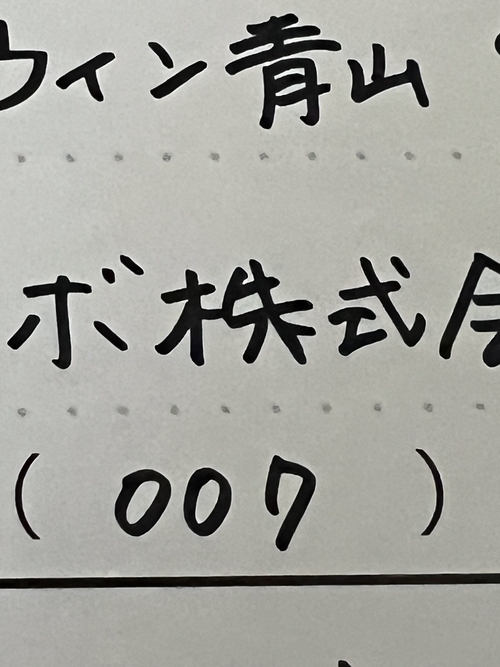 ウィン青山
ボ株式会
( 007 )